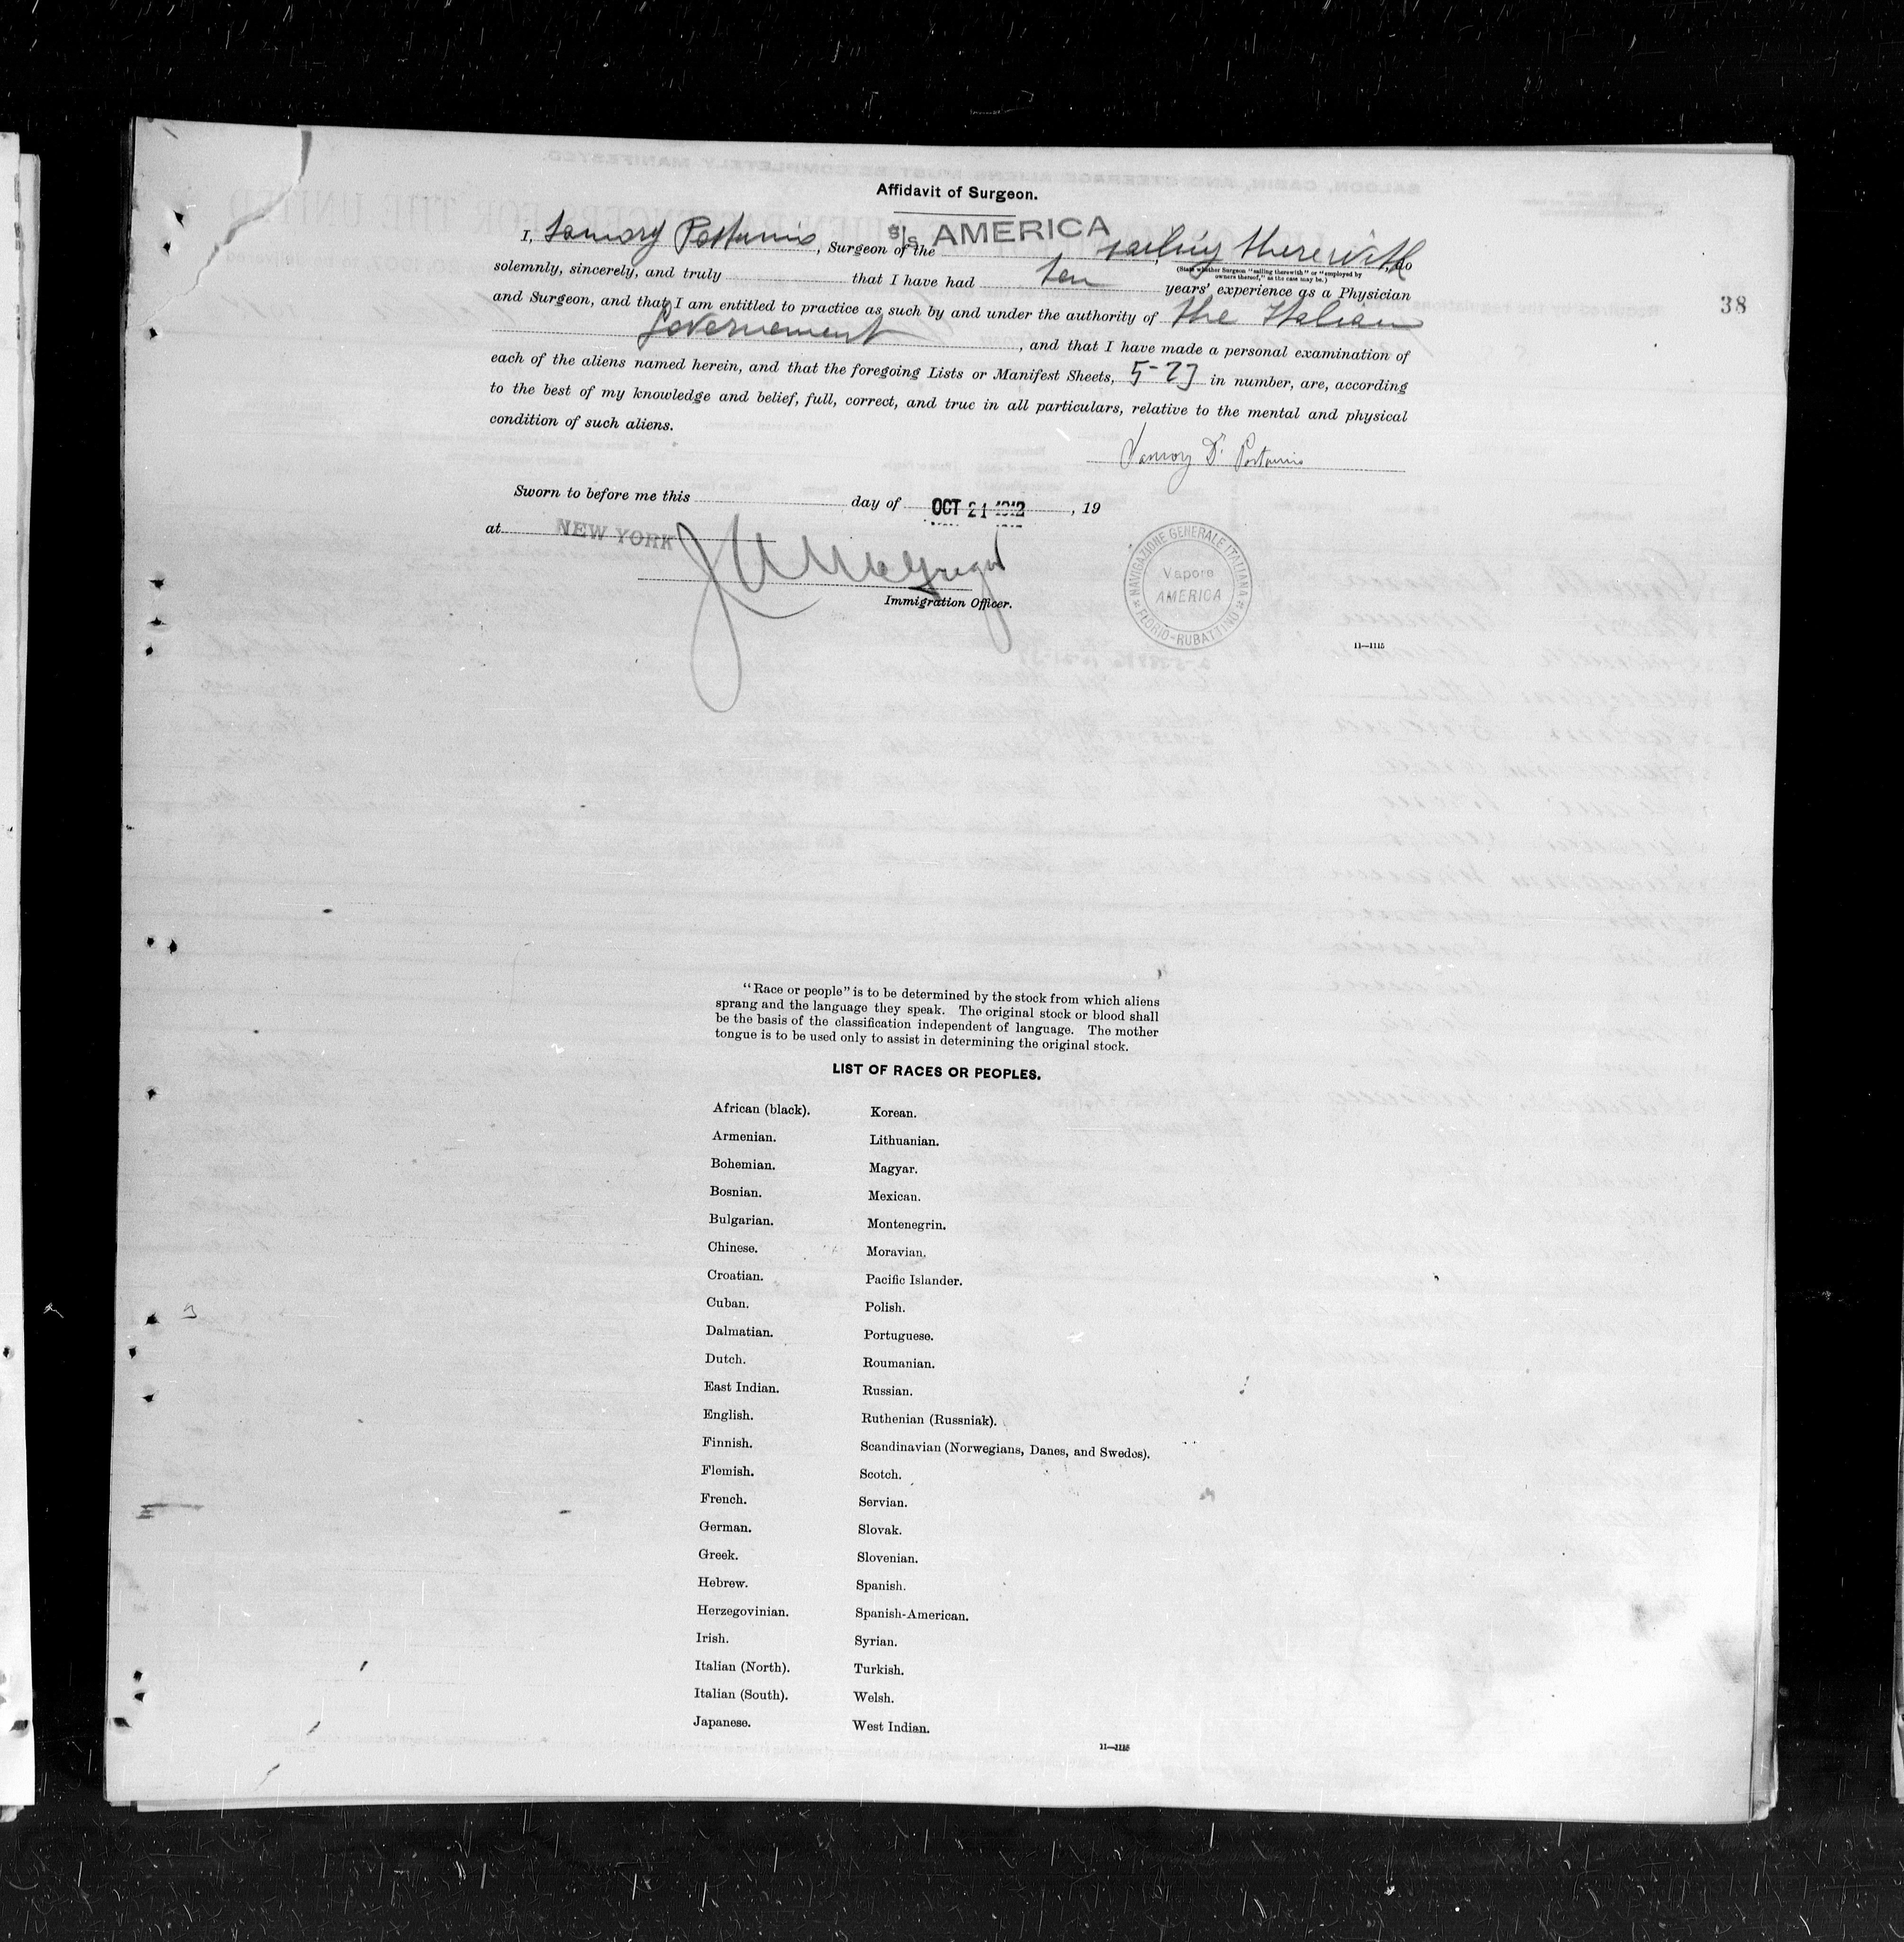 Affidavit of Surgeon.
I, Samory Postumio, Surgeon of the S/S AMERICA sailing therewith, do
(State whether Surgeon "sailing therewith" or "employed by
owners thereof," as the case may be.)
solemnly, sincerely, and truly that I have had ten years' experience as a Physician
and Surgeon, and that I am entitled to practice as such by and under the authority of the Italian
Governement, and that I have made a personal examination of
each of the aliens named herein, and that the foregoing Lists or Manifest Sheets, 5-27 in number, are, according
to the best of my knowledge and belief, full, correct, and true in all particulars, relative to the mental and physical
condition of such aliens.
Samory Dr Postumio
Sworn to before me this day of OCT 21 1912, 19
at NEW YORK
Immigration Officer.
NAVIGAZIONE GENERALE ITALIANA
Vapore
AMERICA
FLORIO-RUBATTINO
11—1115
38
"Race or people" is to be determined by the stock from which aliens
sprang and the language they speak. The original stock or blood shall
be the basis of the classification independent of language. The mother
tongue is to be used only to assist in determining the original stock.
LIST OF RACES OR PEOPLES.
African (black). Korean.
Armenian. Lithuanian.
Bohemian. Magyar.
Bosnian. Mexican.
Bulgarian. Montenegrin.
Chinese. Moravian.
Croatian. Pacific Islander.
Cuban. Polish.
Dalmatian. Portuguese.
Dutch. Roumanian.
East Indian. Russian.
English. Ruthenian (Russniak).
Finnish. Scandinavian (Norwegians, Danes, and Swedes).
Flemish. Scotch.
French. Servian.
German. Slovak.
Greek. Slovenian.
Hebrew. Spanish.
Herzegovinian. Spanish-American.
Irish. Syrian.
Italian (North). Turkish.
Italian (South). Welsh.
Japanese. West Indian.
11—1115